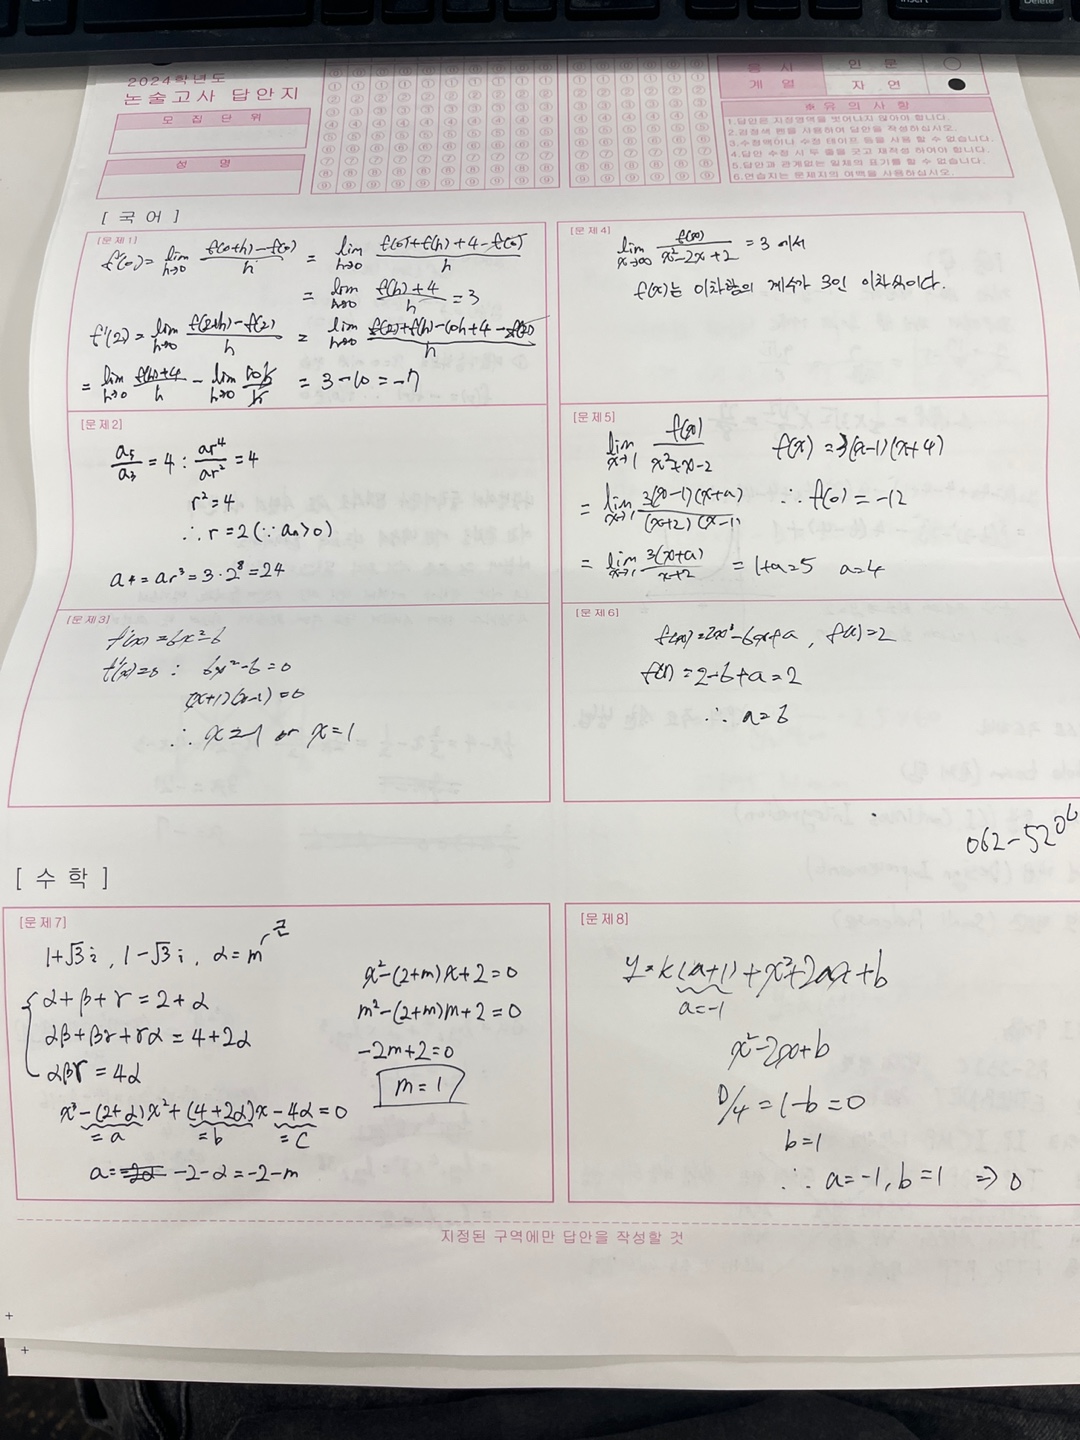 Insert
Delete
2024학년도
논술고사 답안지
모집단위
성명
응시
계열
인문
자연
※ 유의사항
1.답안은 지정영역을 벗어나지 않아야 합니다.
2.검정색 펜을 사용하여 답안을 작성하십시오.
3.수정액이나 수정 테이프 등을 사용 할 수 없습니다.
4.답안 수정 시 두 줄을 긋고 재작성 하여야 합니다.
5.답안과 관계없는 일체의 표기를 할 수 없습니다.
6.연습지는 문제지의 여백을 사용하십시오.
[국어]
[문제1]
f'(0) = lim h→0 f(0+h)-f(0) / h = lim h→0 f(0)+f(h)+4-f(0) / h
= lim h→0 f(h)+4 / h = 3
f'(2) = lim h→0 f(2+h)-f(2) / h = lim h→0 f(2)+f(h)-10h+4-f(2) / h
= lim h→0 f(h)+4 / h - lim h→0 10h / h = 3-10 = -7
[문제2]
a₅/a₃ = 4 : ar⁴/ar² = 4
r² = 4
∴ r = 2 (∵ an > 0)
a₄ = ar³ = 3·2⁸ = 24
[문제3]
f'(x) = 6x²-6
f'(x)=0 : 6x²-6=0
(x+1)(x-1)=0
∴ x=-1 or x=1
[문제4]
lim x→∞ f(x) / x²-2x+2 = 3 에서
f(x)는 이차항의 계수가 3인 이차식이다.
[문제5]
lim x→1 f(x) / x²+x-2 f(x) = 3(x-1)(x+4)
= lim x→1 3(x-1)(x+a) / (x+2)(x-1) ∴ f(0) = -12
= lim x→1 3(x+a) / x+2 = 1+a=5 a=4
[문제6]
f(x)=2x³-6x+a, f(1)=2
f(1) = 2-6+a = 2
∴ a=6
062-520
[수학]
[문제7]
1+√3i, 1-√3i, α=m 근
α+β+r = 2+α
αβ+βr+rα = 4+2α
αβr = 4α
x³-(2+α)x²+(4+2α)x-4α=0
=a =b =c
a= -2α -2-α = -2-m
x²-(2+m)x+2=0
m²-(2+m)m+2=0
-2m+2=0
m=1
[문제8]
y=k(a+1)+x²+2ax+b
a=-1
x²-2x+b
D/4 = 1-b = 0
b=1
∴ a=-1, b=1 ⇒ 0
지정된 구역에만 답안을 작성할 것